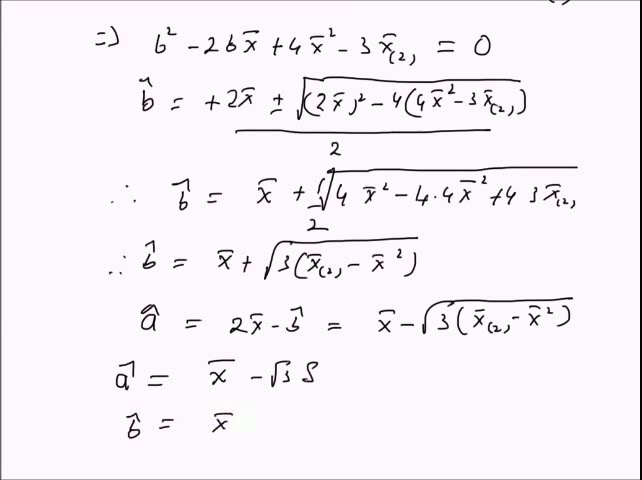 => b² - 2bx̄ + 4x̄² - 3x̄₍₂₎ = 0
b̂ = +2x̄ ± √((2x̄)² - 4(4x̄² - 3x̄₍₂₎)) / 2
∴ b̂ = x̄ + 1/2 √(4x̄² - 4·4x̄² + 4 3x̄₍₂₎)
∴ b̂ = x̄ + √(3(x̄₍₂₎ - x̄²))
â = 2x̄ - b̂ = x̄ - √(3(x̄₍₂₎ - x̄²))
â = x̄ - √3 S
b̂ = x̄